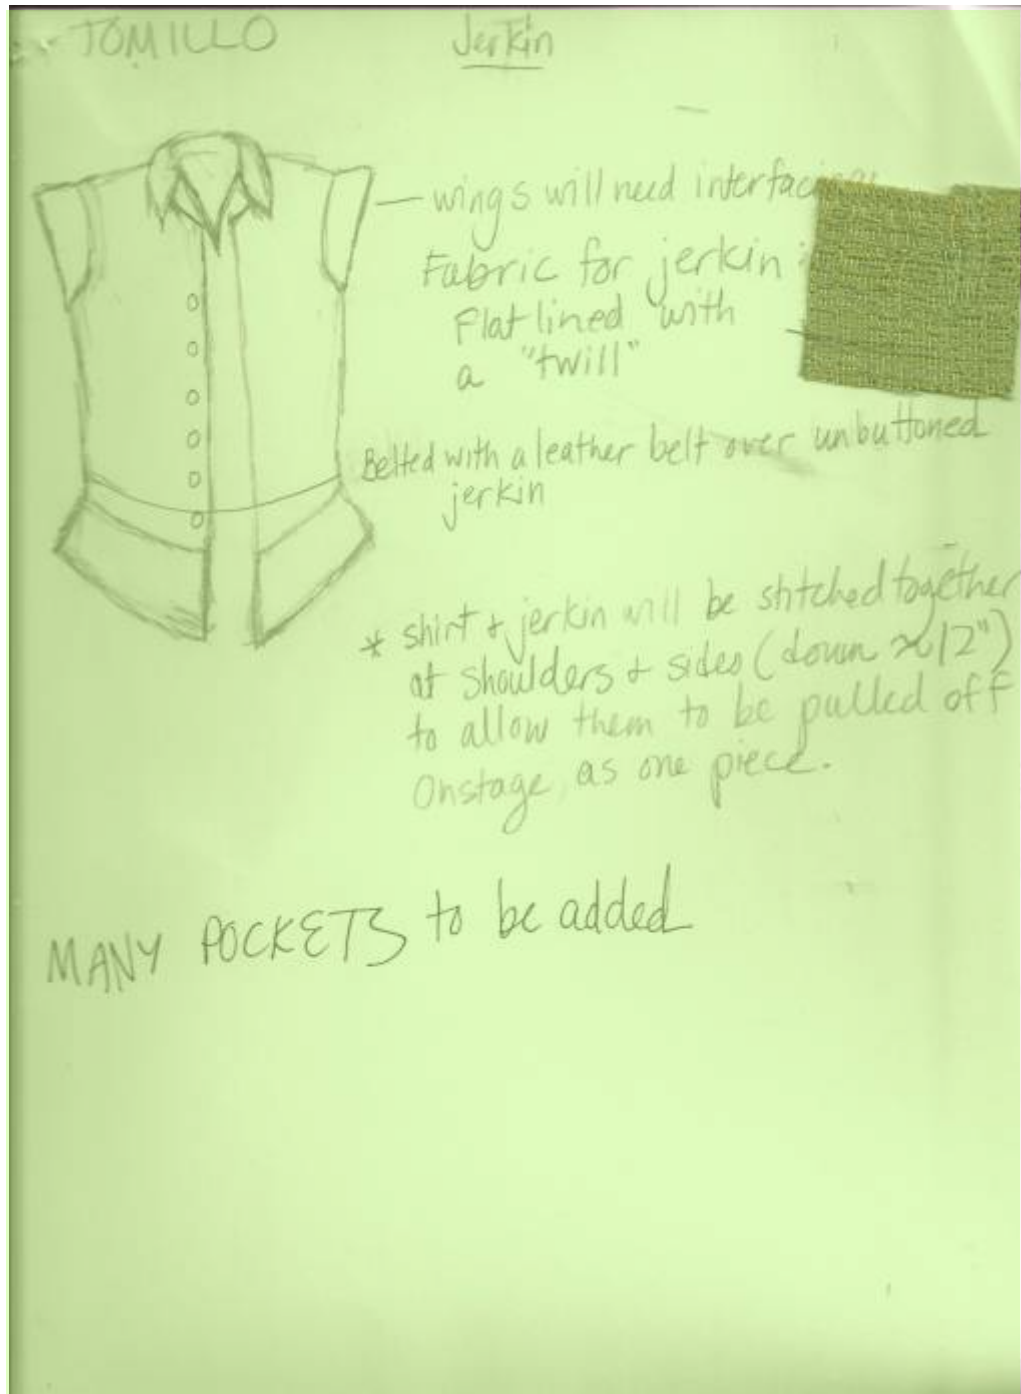 TOMILLO
Jerkin
wings will need interfacing
Fabric for jerkin
Flat lined with
a "twill"
Belted with a leather belt over unbuttoned
jerkin
* shirt + jerkin will be stitched together
at shoulders + sides (down ≈ 12")
to allow them to be pulled off
Onstage as one piece.
MANY POCKETS to be added